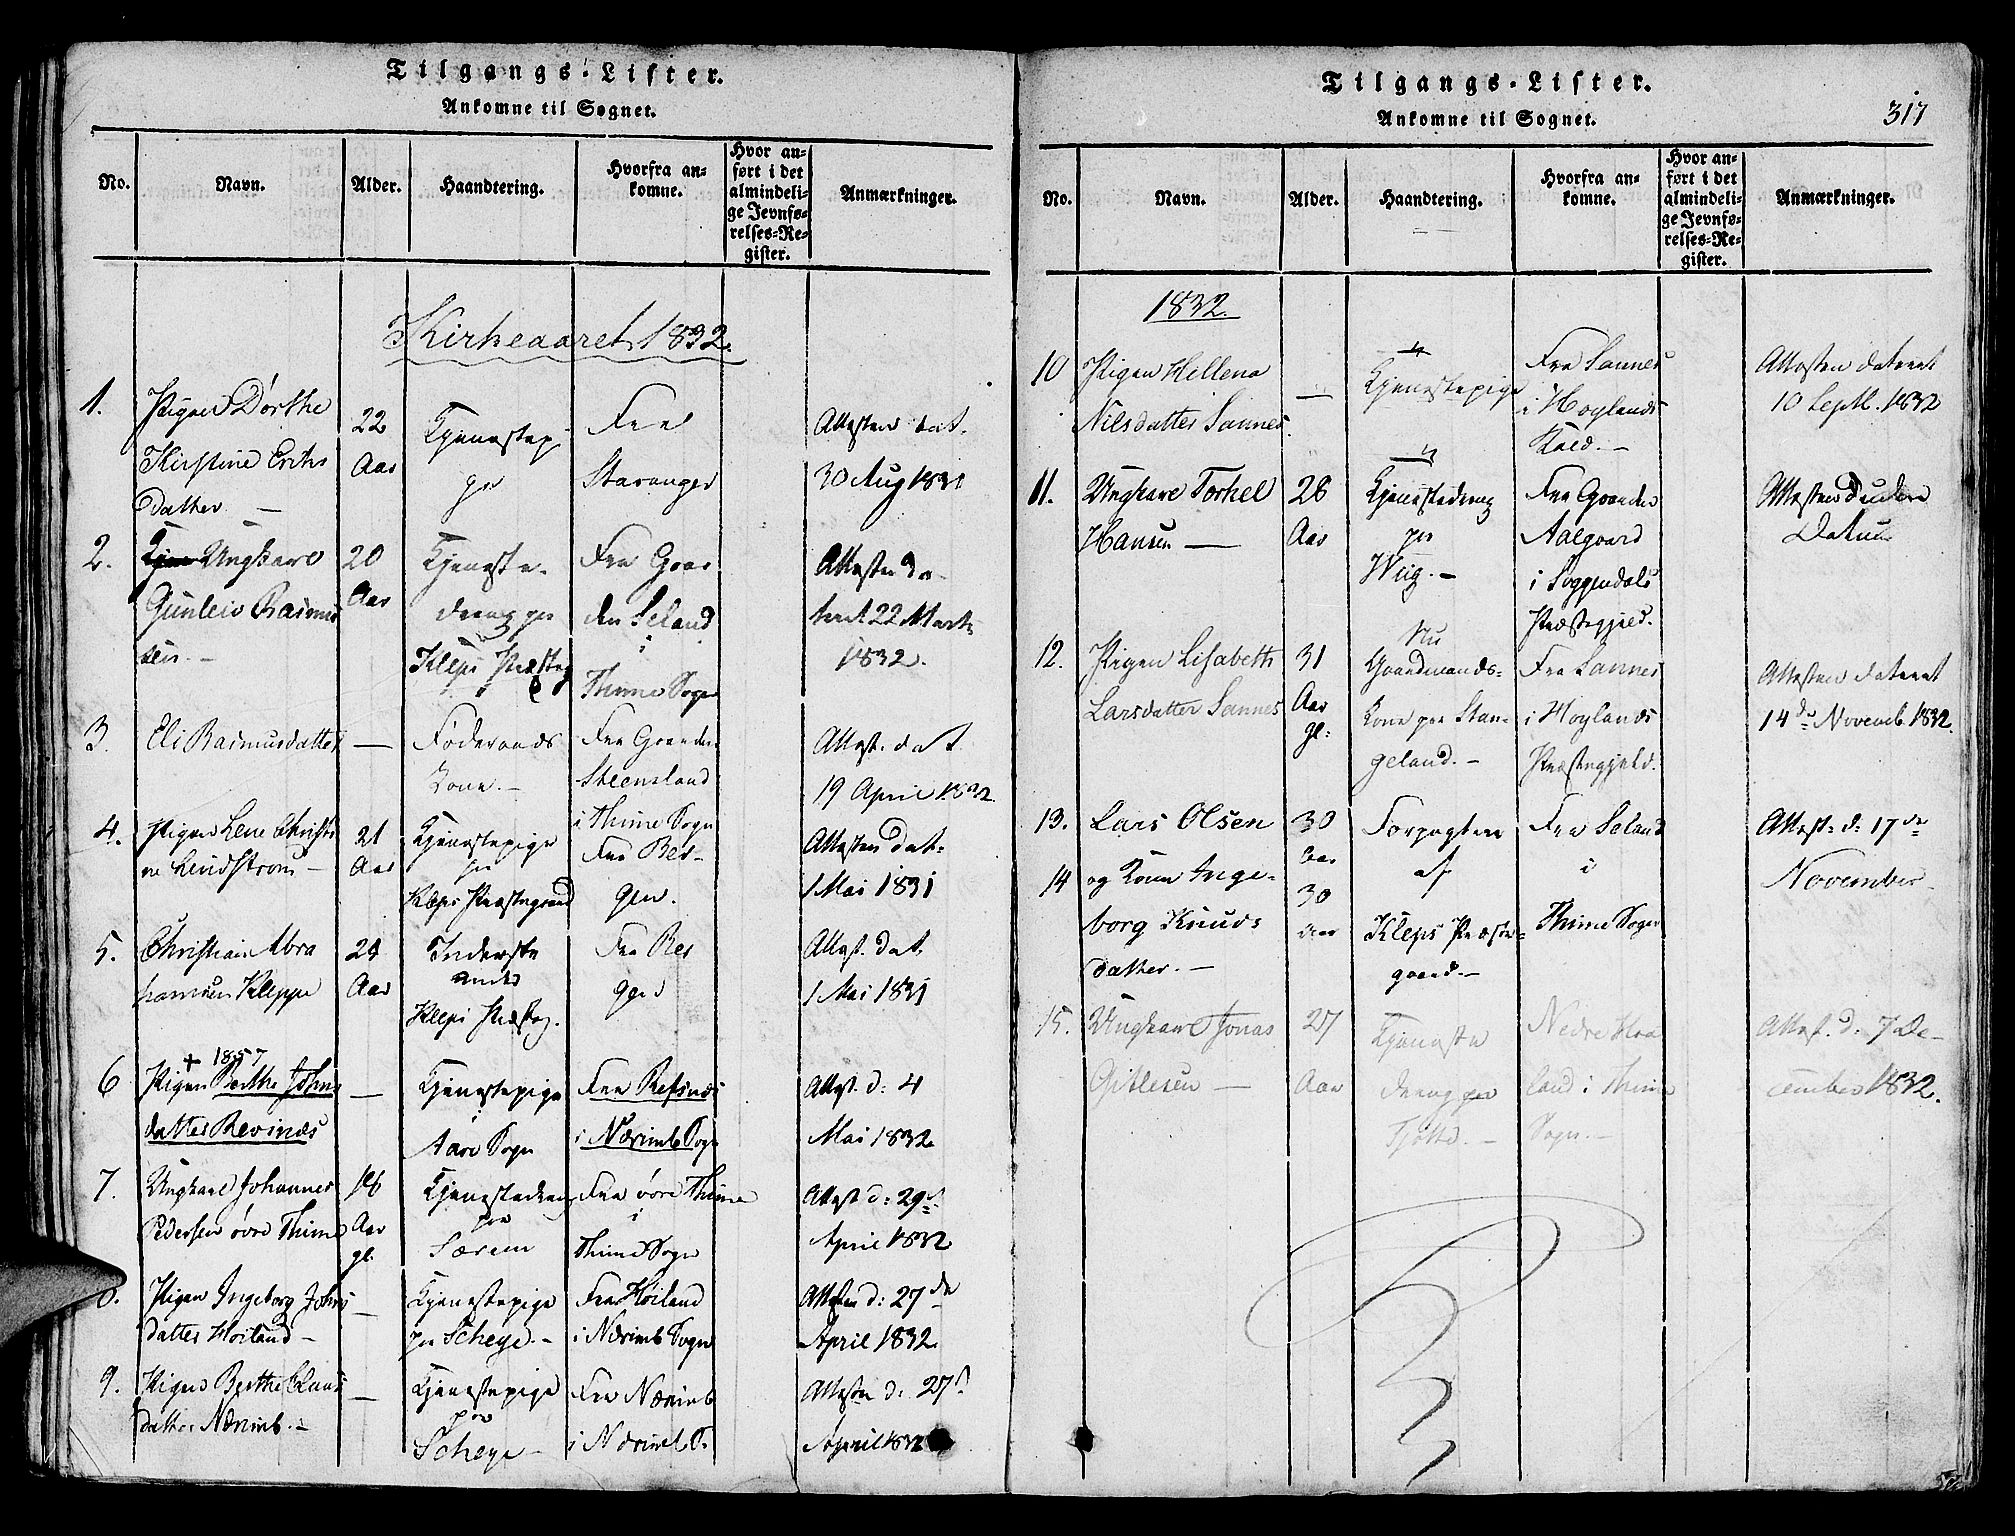 Tilgangs-Lister.
Ankomne til Sognet.
No.
Navn.
Alder.
Haandtering.
Hvorfra an-
komne.
Hvor an-
ført i det
almindeli-
ge Jevnfø-
relses-Re-
gister.
Anmærkninger.
Kirkeaaret 1832.
1.
Pigen Dørthe
Kirstine Erichs
datter. —
22
Aar
Tjenestepi
ge
Fra
Stavanger
Attesten dat.
30 Aug 1831
2.
Ungkarl
Gunleiv Rasmus
sen. —
20
Aar
Tjeneste-
dreng paa
Kleps Præsteg
Fra Gaar
den Seland
i
Thime Sogn
Attesten da-
teret 22 Marts
1832.
3.
Eli Rasmusdatter
—
Føderaads
kone. —
Fra Gaarden
Steensland
i Thime Sogn
Attest. dat.
19 April 1832
4.
Pigen Lene Christi
ne Lindstrøm —
21
Aar
Tjenestepige
paa
Kleps Præstegaard
Fra Ber-
gen.
Attesten dat.
1 Mai 1831
5.
Christian Abra
hamsen Kleppe
24
Aar
Inderste
under
Kleps Præsteg.
Fra Ber
gen
Attest. dat.
1 Mai 1831
6
+ 1857
Pigen Berthe Johns
datter Revinæs
—
Tjenestepige
i
Aare Sogn
Fra Refsnæs
i Nærimb Sogn
Attest. d: 4
Mai 1832
7.
Ungkarl Johannes
Pedersen øvre Thime
16
Aar
gl.
Tjenestedreng
paa
Særem
Fra øvre Thime
i
Thime Sogn
Attest d: 29d
April 1832
8.
Pigen Ingeborg Johns
datter Høiland —
—
Tjenestepige
paa Scheye. —
Fra Høiland
i Nærimb Sogn
Attesten d: 27de
April 1832
9.
Pigen Berthe Claus
datter Nærimb. —
—
Tjenestepige
paa
Scheye —
Fra Nærimb
i Nærimb S.
Attesten d: 27d
April 1832
Tilgangs-Lister.
Ankomne til Sognet.
317
No.
Navn.
Alder.
Haandtering.
Hvorfra an-
komne.
Hvor an-
ført i det
almindeli-
ge Jevnfø-
relses-Re-
gister.
Anmærkninger.
1832.
10
Pigen Hellena
Nilsdatter Sannes.
—
Tjenestepige
Fra Sannes
i Høylands
Kald. —
Attesten dateret
10 Sept. 1832
11.
Ungkarl Torkel
Hansen —
26
Aar
Tjenestedreng
paa
Wiig. —
Fra Gaarden
Aalgaard
i Soggendals
Præstegjæld.
Attesten uden
Datum
12.
Pigen Lisabeth
Larsdatter Sannes
31
Aar
gl:
Nu
Gaardmands-
kone paa Stan-
geland. —
Fra Sannes
i Høylands
Præstegjæld.
Attesten dateret
14de Novemb. 1832.
13.
Lars Olsen
30
Aar
Forpagter
af
Fra Seland
i
Attest: d: 17de
November
14
og Kone Inge-
borg Knuds
datter. —
30
Aar
Kleps Præste-
gaard. —
Thime Sogn
15.
Ungkarl Jonas
Gitlesen —
27
Aar
Tjeneste
dreng paa
Tjøtte. —
Nedre Haa
land i Thime
Sogn. —
Attest. d. 7 De-
cember 1832.